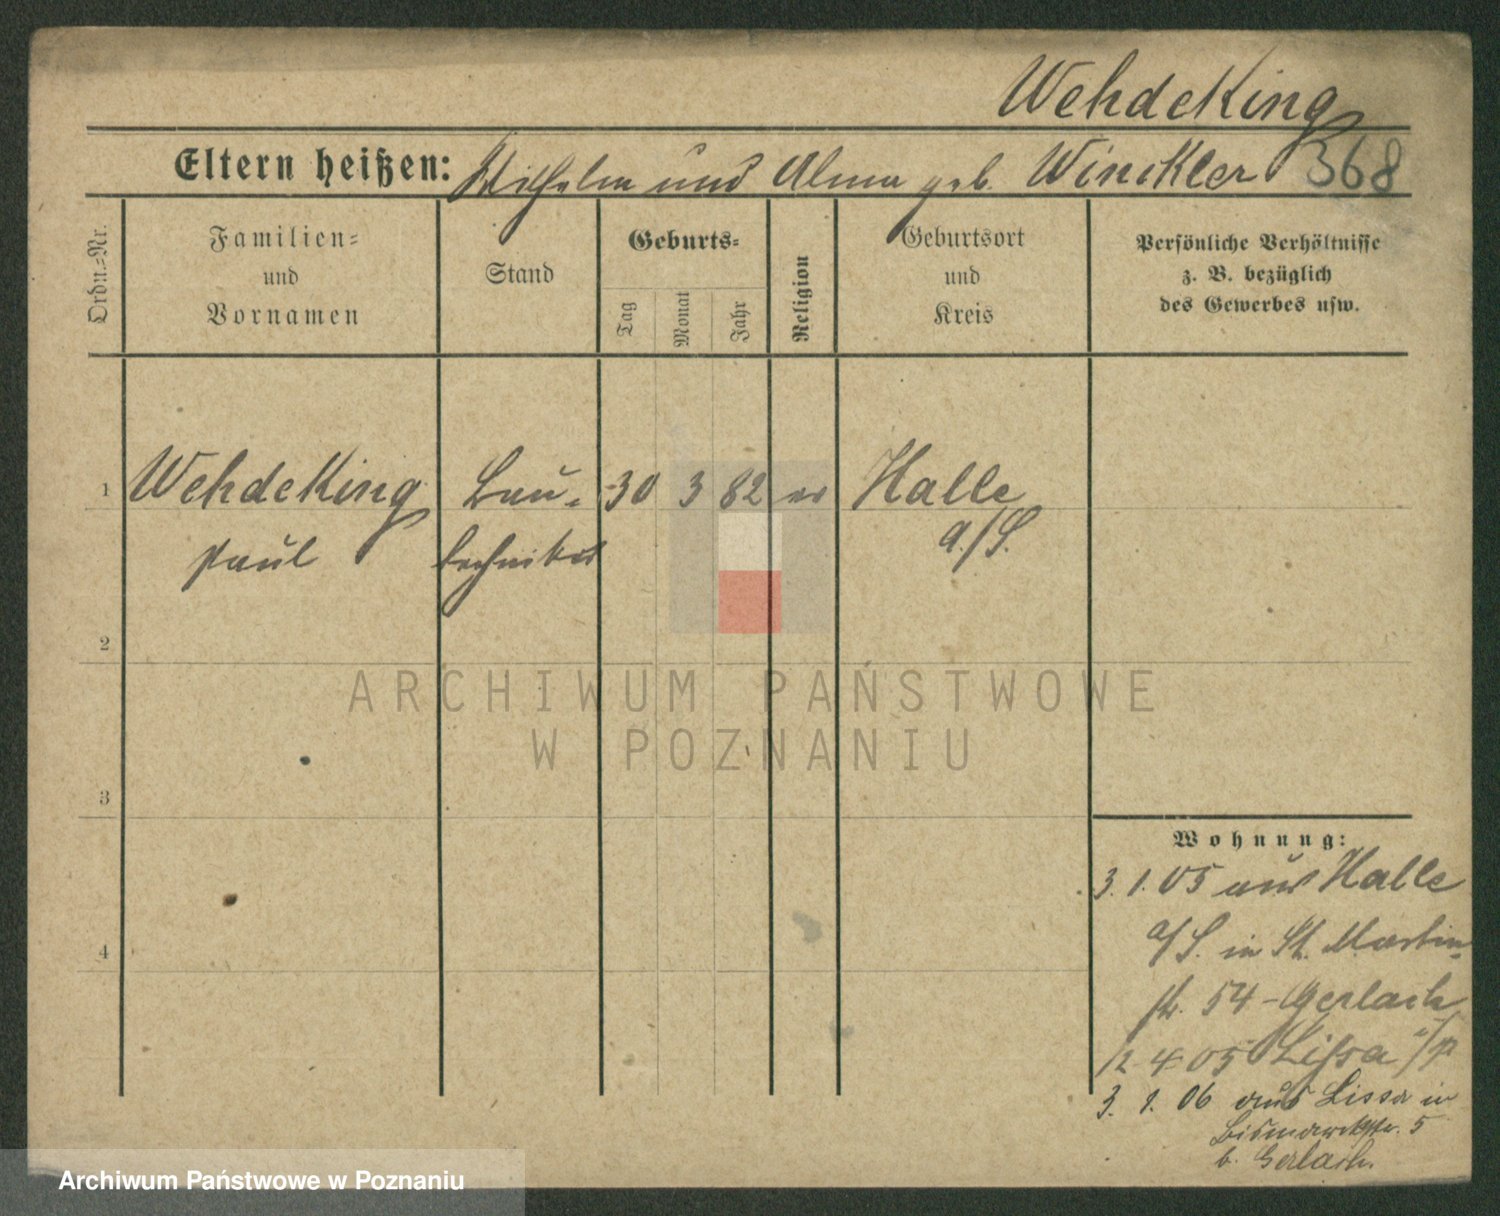 Wehdeking
Eltern heißen: Wilhelm und Alma geb. Winckler 368
Ordn.-Nr.
Familien-
und
Vornamen
Stand
Geburts-
Tag
Monat
Jahr
Religion
Geburtsort
und
Kreis
Persönliche Verhältnisse
z. B. bezüglich
des Gewerbes usw.
1 Wehdeking Bau- 30 3 82 ev Halle
Paul techniker a./S.
2
3
4
Wohnung:
3. 1. 05 aus Halle
a/S. in St. Martin-
str. 54 - Gerlach
12 4 05 Lissa i/P
3. 1. 06 aus Lissa in
Bismarckstr. 5
b. Gerlach.
ARCHIWUM PAŃSTWOWE
W POZNANIU
Archiwum Państwowe w Poznaniu